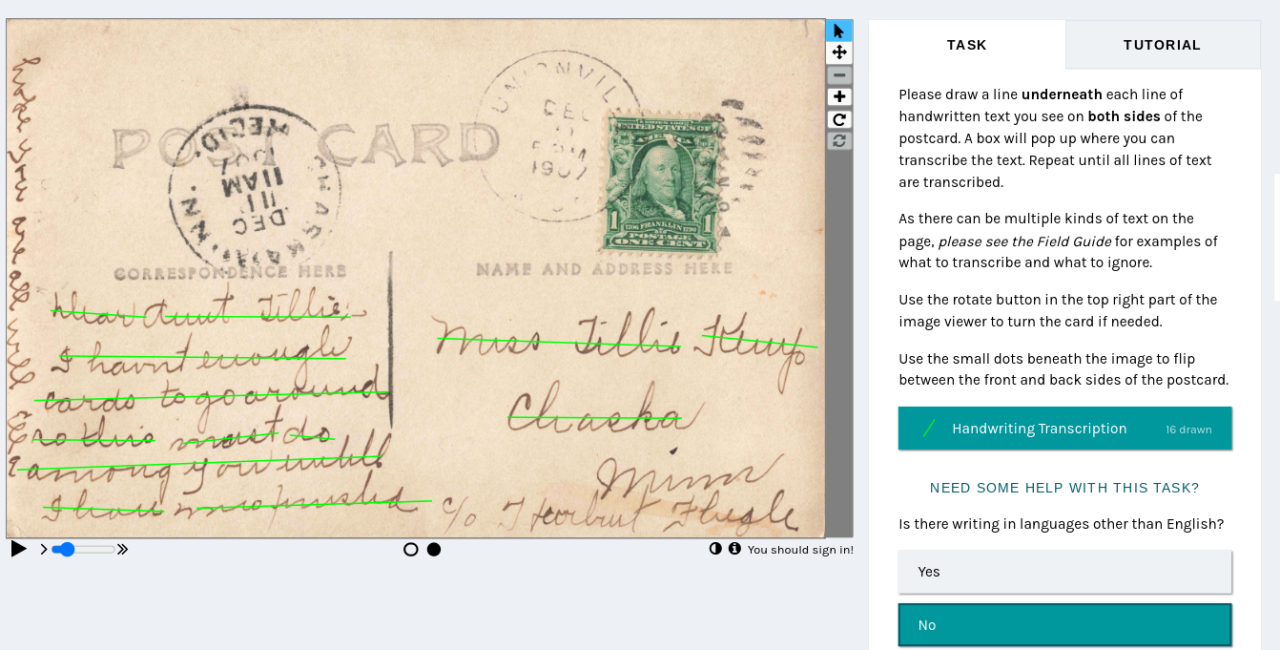 hope you are all well
POST CARD
UNIONVIL
DEC
11
5 PM
1907
REC'D.
1907
11 AM
DEC
MINN.
UNITED STATES OF
1 1
FRANKLIN
POSTAGE
ONE CENT
CORRESPONDENCE HERE
NAME AND ADDRESS HERE
Dear Aunt Tillie,
I havnt enough
cards to go around
so this must do
among you untill
I have
Miss Tillie Kemp
Chaska
Minn
c/o Herbert
TASK
TUTORIAL
Please draw a line underneath each line of
handwritten text you see on both sides of the
postcard. A box will pop up where you can
transcribe the text. Repeat until all lines of text
are transcribed.
As there can be multiple kinds of text on the
page, please see the Field Guide for examples of
what to transcribe and what to ignore.
Use the rotate button in the top right part of the
image viewer to turn the card if needed.
Use the small dots beneath the image to flip
between the front and back sides of the postcard.
Handwriting Transcription 16 drawn
NEED SOME HELP WITH THIS TASK?
Is there writing in languages other than English?
Yes
No
You should sign in!